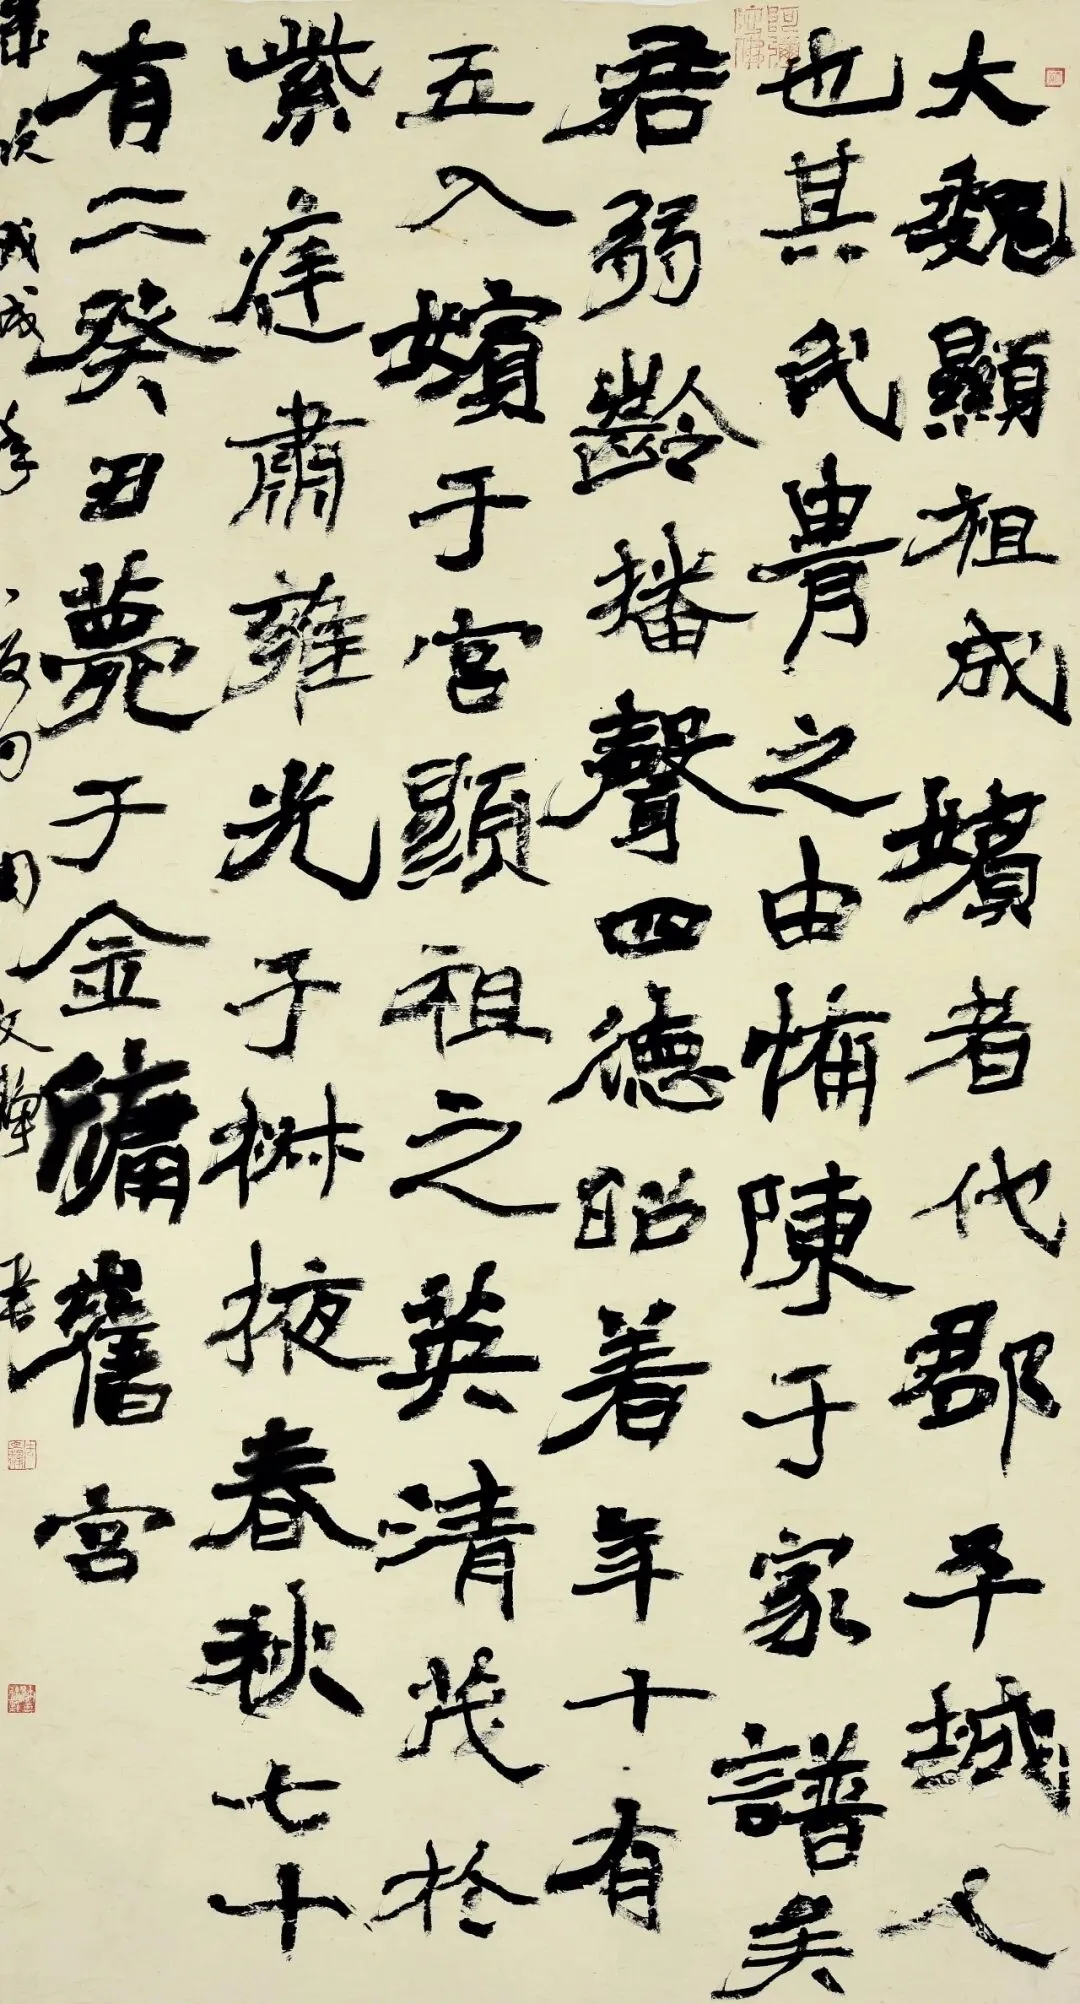 大魏顯祖成嬪者代郡平城人
也其氏胄之由備陳于家譜矣
君弱齡播聲四德昭着年十有
五入嬪于宮顯祖之英清茂於
紫庭肅雍光于椒掖春秋七十
有二癸丑薨于金墉舊宮
歲次戊戌年